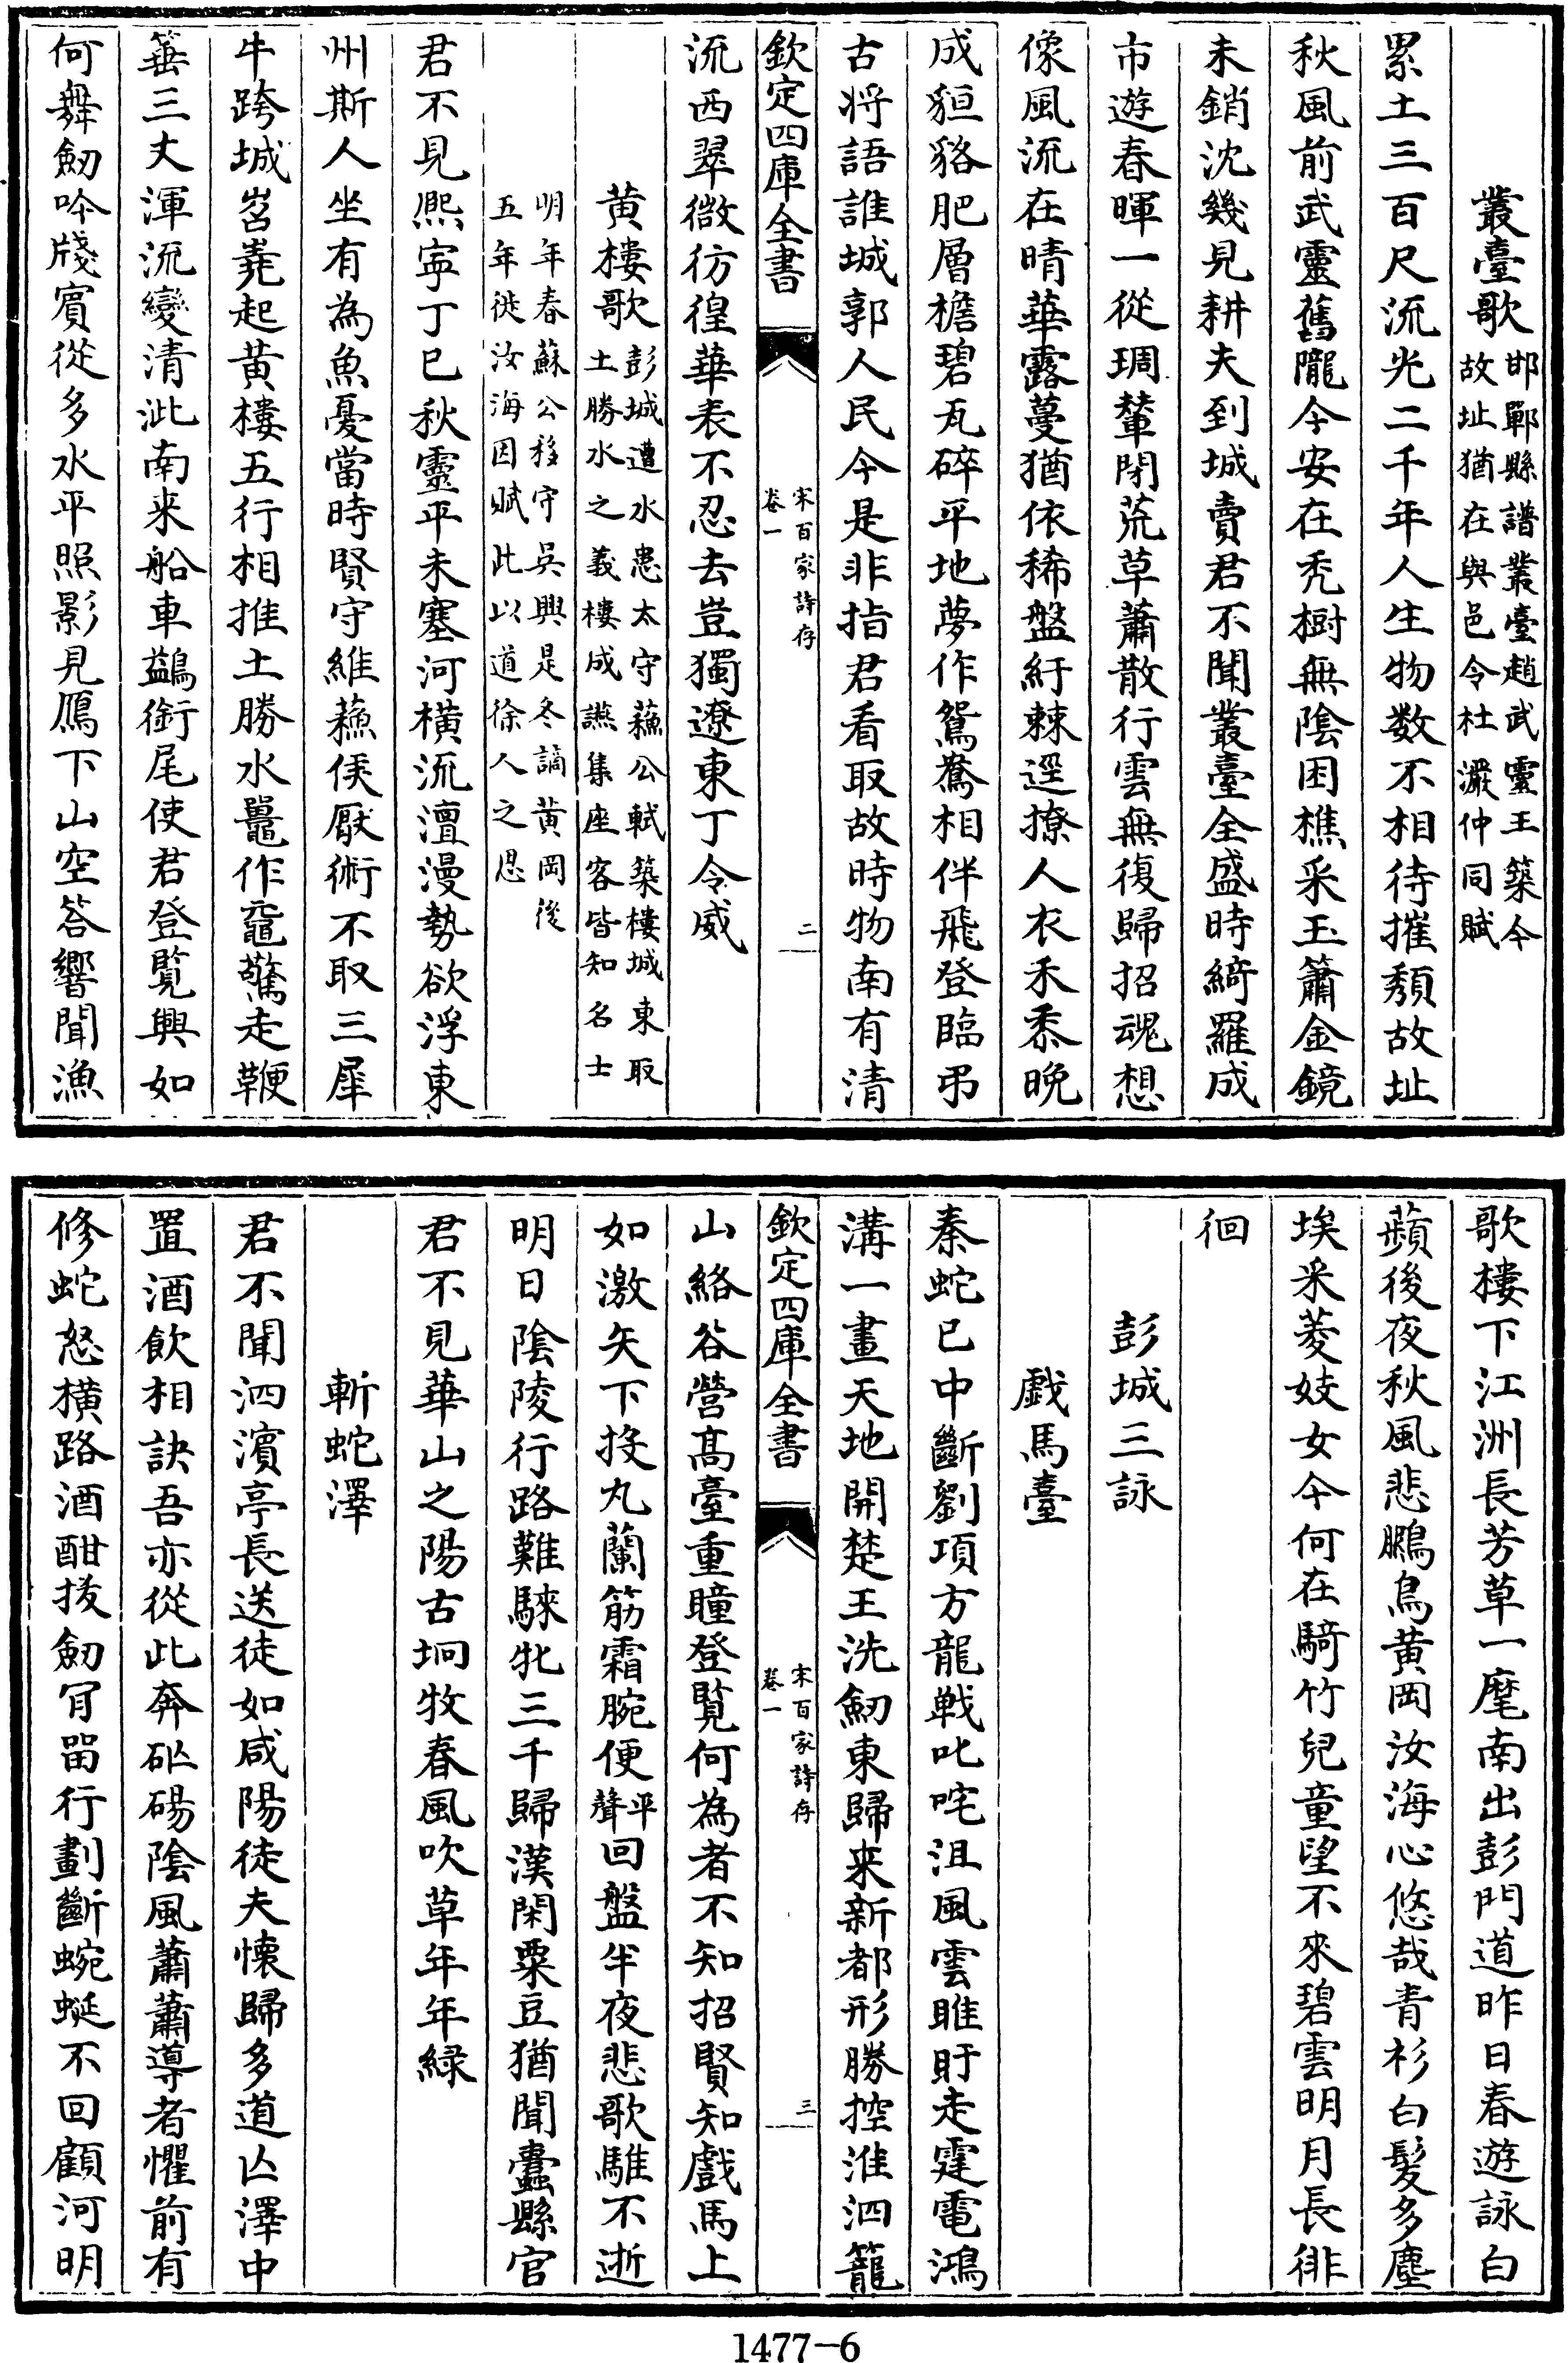 叢臺歌邯鄲縣譜叢臺趙武靈王築今故址猶在與邑令杜濈仲同賦
累土三百尺流光二千年人生物数不相待摧頽故址
秋風前武靈舊隴今安在秃樹無陰困樵采玉簫金鏡
未銷沈幾見耕夫到城賣君不聞叢臺全盛時綺羅成
市遊春暉一從琱輦閉荒草蕭散行雲無復歸招魂想
像風流在晴華露蔓猶依稀盤紆棘逕撩人衣禾黍晚
成貆貉肥層檐碧瓦碎平地夢作鴛鴦相伴飛登臨弔
古将語誰城郭人民今是非指君看取故時物南有清
欽定四庫全書
宋百家詩存
卷一
二
流西翠微彷徨華表不忍去豈獨遼東丁令威
黄樓歌彭城遭水患太守蘓公軾築樓城東取土勝水之義樓成讌集座客皆知名士
明年春蘇公移守吳興是冬謫黄岡後五年徙汝海因賦此以道徐人之思
君不見熈寧丁巳秋靈平未塞河橫流澶漫勢欲浮東
州斯人坐有為魚憂當時賢守維蘓侯厭術不取三犀
牛跨城岧嶤起黄樓五行相推土勝水鼉作竈驚走鞭
箠三丈渾流變清泚南来船車鷁銜尾使君登覽興如
何舞劒吟牋賓從多水平照影見鴈下山空答響聞漁
歌樓下江洲長芳草一麾南出彭門道昨日春遊詠白
蘋後夜秋風悲鵩鳥黄岡汝海心悠哉青衫白髮多塵
埃采菱妓女今何在騎竹兒童望不來碧雲明月長徘
徊
彭城三詠
戯馬臺
秦蛇已中斷劉項方龍戦叱咤沮風雲睢盱走霆電鴻
溝一畫天地開楚王洗劒東歸来新都形勝控淮泗籠
欽定四庫全書
宋百家詩存
卷一
三
山絡谷營髙臺重瞳登覧何為者不知招賢知戲馬上
如激矢下投丸蘭筋霜腕便平聲回盤半夜悲歌騅不逝
明日陰陵行路難騋牝三千歸漢閑粟豆猶聞蠹縣官
君不見華山之陽古坰牧春風吹草年年緑
斬蛇澤
君不聞泗濵亭長送徒如咸陽徒夫懐歸多道亾澤中
置酒飲相訣吾亦從此奔砀陰風蕭蕭導者懼前有
修蛇怒横路酒酣拔劒冐畱行劃斷蜿蜒不回顧河明
1477-6